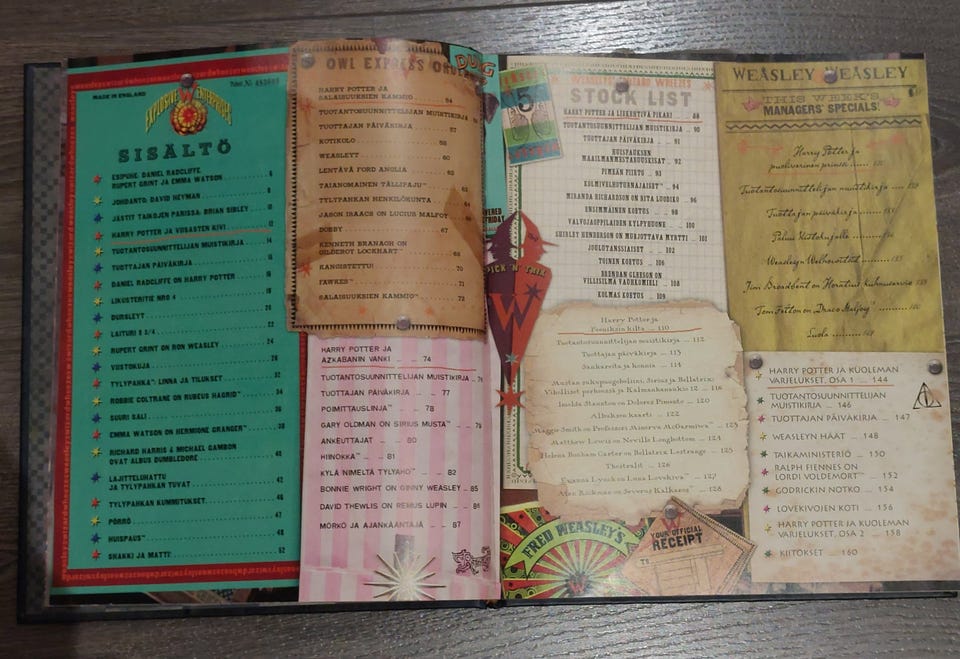 MADE IN ENGLAND
EXPLOSIVE ENTERPRISES
SISÄLTÖ
ESIPUHE: DANIEL RADCLIFFE
RUPERT GRINT JA EMMA WATSON 6
JOHDANTO: DAVID HEYMAN 8
JÄSTIT TAIKOJEN PARISSA: BRIAN SIBLEY 10
HARRY POTTER JA VIISASTEN KIVI 12
TUOTANTOSUUNNITTELIJAN MUISTIKIRJA 14
TUOTTAJAN PÄIVÄKIRJA 16
DANIEL RADCLIFFE ON HARRY POTTER 18
LIKUSTERITIE NRO 4
DURSLEYT
LAITURI 9 3/4 22
RUPERT GRINT ON RON WEASLEY 24
VIISTOKUJA 26
TYLYPAHKA™ LINNA JA TILUKSET 32
ROBBIE COLTRANE ON RUBEUS HAGRID™ 34
SUURI SALI 36
EMMA WATSON ON HERMIONE GRANGER™ 38
RICHARD HARRIS & MICHAEL GAMBON
OVAT ALBUS DUMBLEDORE 40
LAJITTELUHATTU
JA TYLYPAHKAN TUVAT 42
TYLYPAHKAN KUMMITUKSET 46
PÖRRÖ 47
HUISPAUS™ 48
SHAKKI JA MATTI! 52
OWL EXPRESS
HARRY POTTER JA
SALAISUUKSIEN KAMMIO 54
TUOTANTOSUUNNITTELIJAN MUISTIKIRJA
TUOTTAJAN PÄIVÄKIRJA 57
KOTIKOLO 58
WEASLEYT 60
LENTÄVÄ FORD ANGLIA 62
TAIANOMAINEN TÄLLIPAJU™ 63
TYLYPAHKAN HENKILÖKUNTA 64
JASON ISAACS ON LUCIUS MALFOY 66
DOBBY 67
KENNETH BRANAGH ON
GILDEROY LOCKHART 68
KANGISTETTU! 70
FAWKES™ 71
SALAISUUKSIEN KAMMIO™ 72
HARRY POTTER JA
AZKABANIN VANKI 74
TUOTANTOSUUNNITTELIJAN MUISTIKIRJA 76
TUOTTAJAN PÄIVÄKIRJA 77
POIMITTAUSLINJA™ 78
GARY OLDMAN ON SIRIUS MUSTA™ 79
ANKEUTTAJAT 80
HIINOKKA™ 81
KYLÄ NIMELTÄ TYLYAHO™ 82
BONNIE WRIGHT ON GINNY WEASLEY 85
DAVID THEWLIS ON REMUS LUPIN 86
MÖRKÖ JA AJANKÄÄNTÄJÄ 87
PICK 'N' TRIX
W
STOCK LIST
HARRY POTTER JA LIEKEHTIVÄ PIKARI 88
TUOTANTOSUUNNITTELIJAN MUISTIKIRJA 90
TUOTTAJAN PÄIVÄKIRJA 91
HUISPAUKSEN
MAAILMANMESTARUUSKISAT 92
PIMEÄN PIIRTO 93
KOLMIVELHOTURNAJAISET™ 94
MIRANDA RICHARDSON ON RITA LUODIKO 96
ENSIMMÄINEN KOETUS 98
VALVOJAOPPILAIDEN KYLPYHUONE 100
SHIRLEY HENDERSON ON MURJOTTAVA MYRTTI 101
JOULUTANSSIAISET 102
TOINEN KOETUS 106
BRENDAN GLEESON ON
VILLISILMÄ VAUHKOMIELI 108
KOLMAS KOETUS 109
Harry Potter ja
Feeniksin kilta 110
Tuotantosuunnittelijan muistikirja 112
Tuottajan päiväkirja 113
Saukoreita ja kensia 114
Imelda Staunton on Dolores Pimento 120
Albuksen kaarti 122
Maggie Smith on Professori Minerva McGarmiwa™ 123
Matthew Lewis on Neville Longbottom 124
Helena Bonham Carter on Bellatrix Lestrange 125
Thestralit 126
Evanna Lynch on Luna Lovekiva™ 127
Alan Rickman on Severus Kalkaros 128
FRED WEASLEY'S
YOUR OFFICIAL
RECEIPT
WEASLEY WEASLEY
THIS WEEK'S
MANAGERS' SPECIALS!
Harry Potter ja
puoliverinen prinssi
Tuotantosuunnittelijan muistikirja
Tuottajan päiväkirja
Paluu Viistokujalle
Weasleyn Welhowitsit
Jim Broadbent on Horatius Kuhnusarvio
Tom Felton on Draco Malfoy
Luola
HARRY POTTER JA KUOLEMAN
VARJELUKSET, OSA 1 144
TUOTANTOSUUNNITTELIJAN
MUISTIKIRJA 146
TUOTTAJAN PÄIVÄKIRJA 147
WEASLEYN HÄÄT 148
TAIKAMINISTERIÖ 150
RALPH FIENNES ON
LORDI VOLDEMORT™ 152
GODRICKIN NOTKO 154
LOVEKIVOJEN KOTI 156
HARRY POTTER JA KUOLEMAN
VARJELUKSET, OSA 2 158
KIITOKSET 160